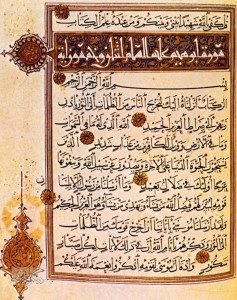 كفى بالله شهيدا بيني وبينكم ومن عنده علم الكتاب
سورة ابرهيم عليه السلام
بسم الله الرحمن الرحيم
الر كتاب انزلناه اليك لتخرج الناس من الظلمات الى النور باذن
ربهم الى صراط العزيز الحميد الله الذي له ما في السموات
وما في الارض وويل للكافرين من عذاب شديد الذين يستحبون
الحيوة الدنيا على الاخرة ويصدون عن سبيل الله ويبغونها
عوجا اولئك في ضلال بعيد وما ارسلنا من رسول الا بلسان
قومه ليبين لهم فيضل الله من يشاء ويهدي من يشاء وهو العزيز
الحكيم ولقد ارسلنا موسى باياتنا ان اخرج قومك من الظلمات
الى النور وذكرهم بايام الله ان في ذلك لايات لكل صبار
شكور واذ قال موسى لقومه اذكروا نعمة الله عليكم